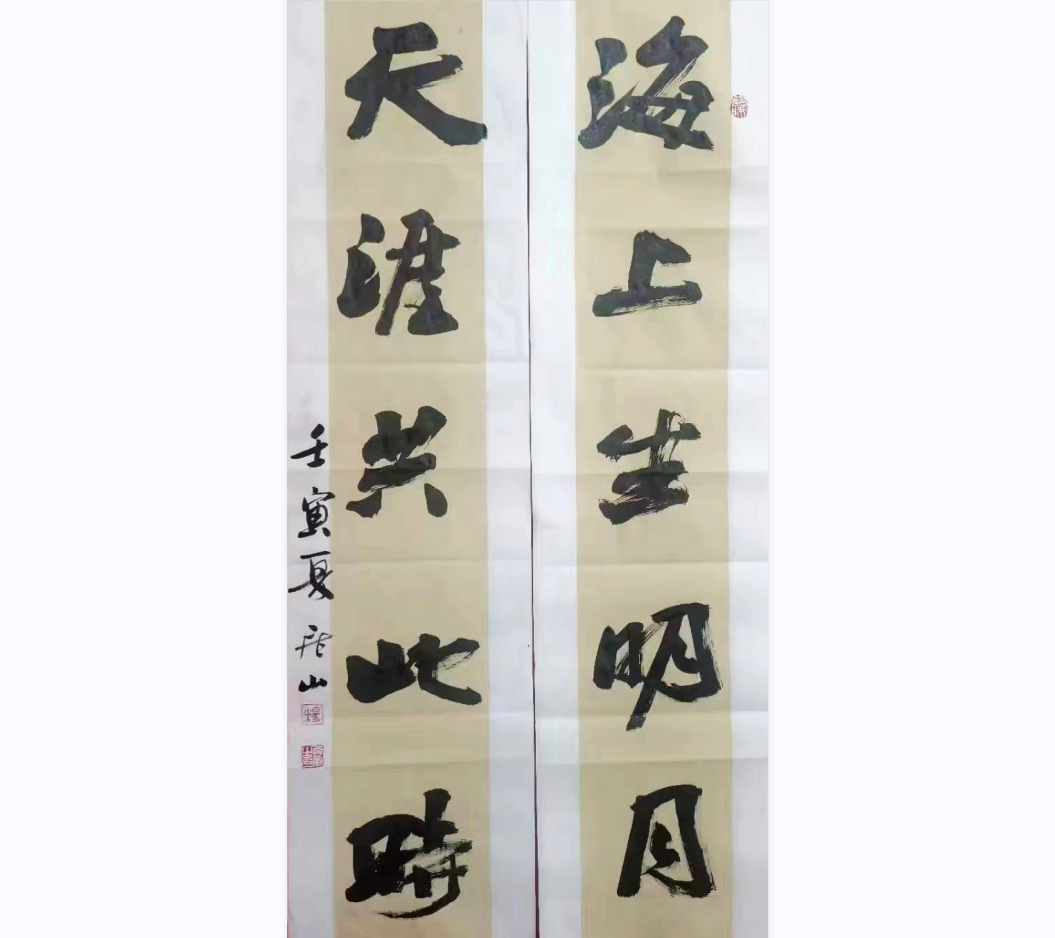 海上生明月
天涯共此時
壬寅夏
山